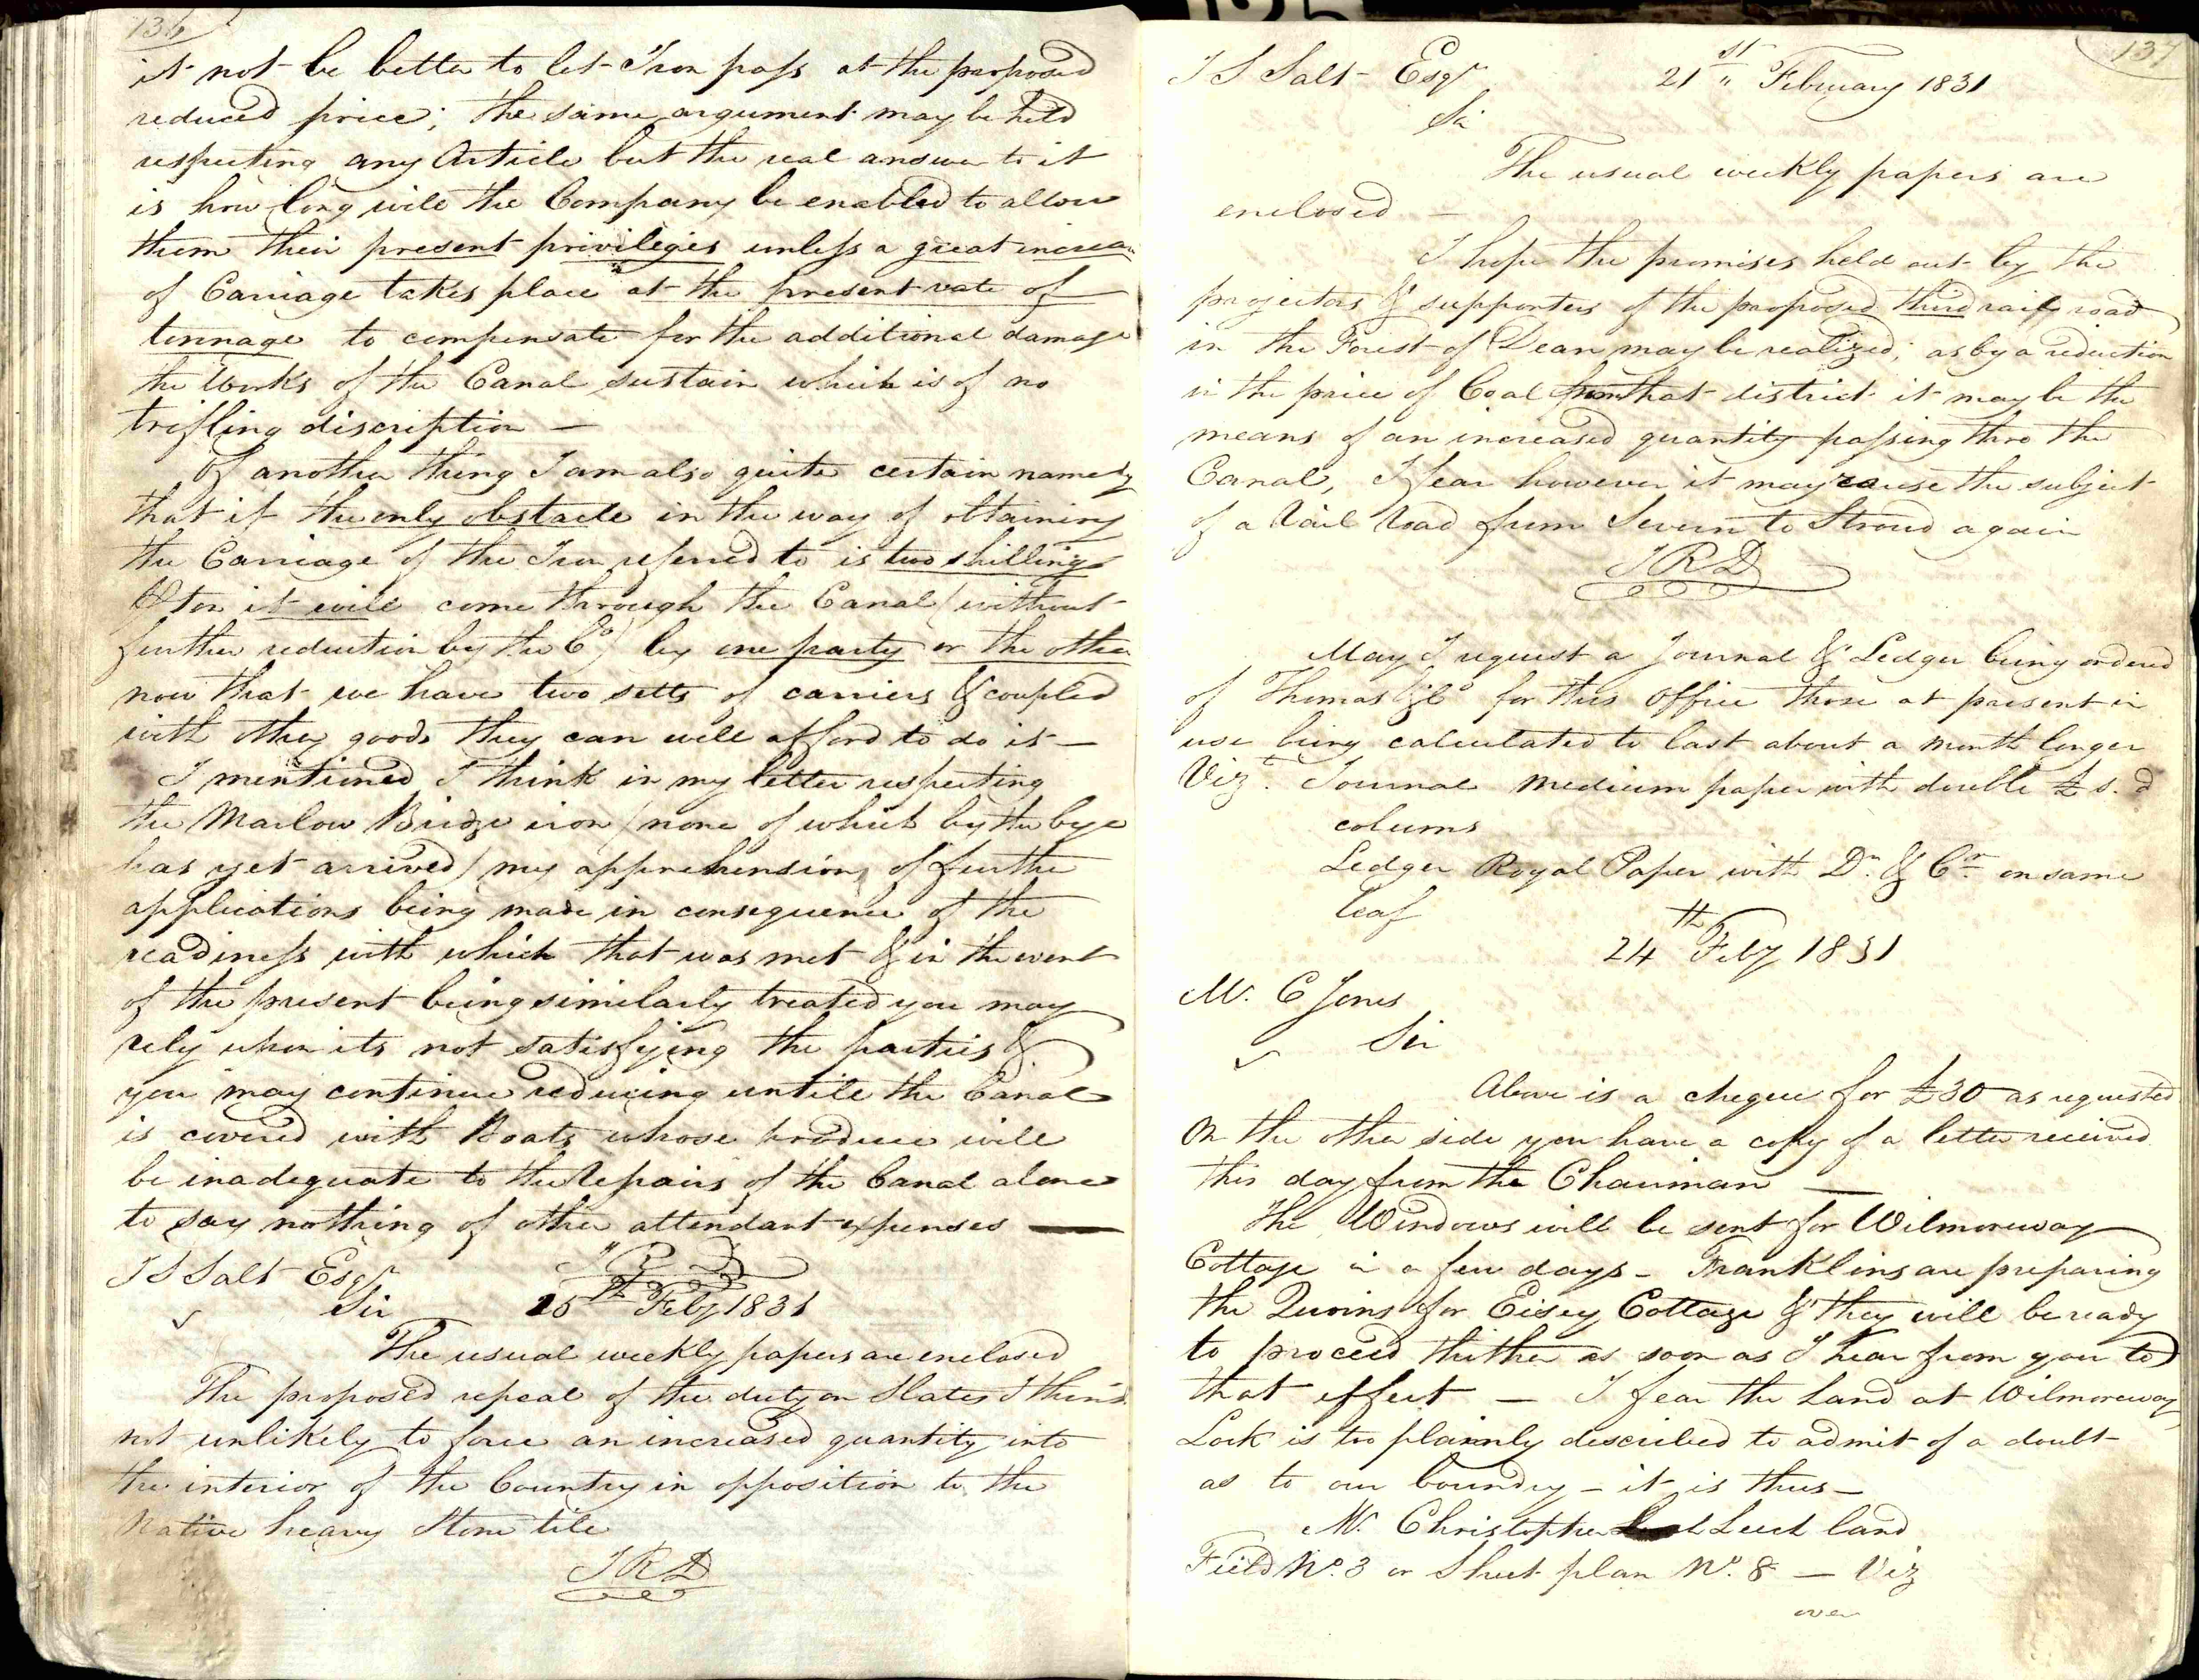 136
it not be better to let Iron pass at the proposed
reduced price; the same argument may be held
respecting any Article but the real answer to it
is how long will the Company be enabled to allow
them their present privileges unless a great increase
of Carriage takes place at the present rate of
tonnage to compensate for the additional damage
the Works of the Canal sustain which is of no
trifling discription —
Of another thing I am also quite certain namely
that if the only obstacle in the way of obtaining
the Carriage of the Iron referred to is two shillings
⅌ ton it will come through the Canal (without
further reduction by the Co) by one party or the other
now that we have two setts of carriers & coupled
with other goods they can well afford to do it —
I mentioned I think in my letter respecting
the Marlow Bridge iron (none of which by the bye
has yet arrived) my apprehensions of further
applications being made in consequence of the
readiness with which that was met & in the event
of the present being similarly treated you may
rely upon its not satisfying the parties &
you may continue reducing untill the Canal
is covered with Boats whose produce will
be inadequate to the Repairs of the Canal alone
to say nothing of other attendant expenses —
J R D
J S Salt Esqr
Sir th Feby 1831
The usual weekly papers are enclosed
The proposed repeal of the duty on Slates I think
not unlikely to force an increased quantity into
the interior of the Country in opposition to the
Native heavy Stone tile
J R D
137
J S Salt Esqr 21st " February 1831
Sir
The usual weekly papers are
enclosed —
I hope the promises held out by the
projectors & supporters of the proposed third rail road
in the Forest of Dean may be realized; as by a reduction
in the price of Coal from that district it may be the
means of an increased quantity passing thro the
Canal, I fear however it may cause the subject
of a Rail Road from Severn to Stroud again
J R D
May I request a Journal & Ledger being ordered
of Thomas & Co for this Office those at present in
use being calculated to last about a month longer
Vizt. Journal medium paper with double £ s. d
colums
Ledger Royal Paper with Dr. & Cr on same
leaf
24th Feby 1831
Mr. C Jones
Sir
Above is a cheque for £30 as requested
On the other side you have a copy of a letter received
this day from the Chairman —
The Windows will be sent for Wilmoreway
Cottage in a few days – Franklins are preparing
the Quoins for Eisey Cottage & they will be ready
to proceed thither as soon as I hear from you to
that effect — I fear the Land at Wilmoreway
Lock is too plainnly described to admit of a doubt
as to our boundry – it is thus –
Mr. Christopher Leech land
Field No. 3 or Sheet plan No. 8 — Viz
over